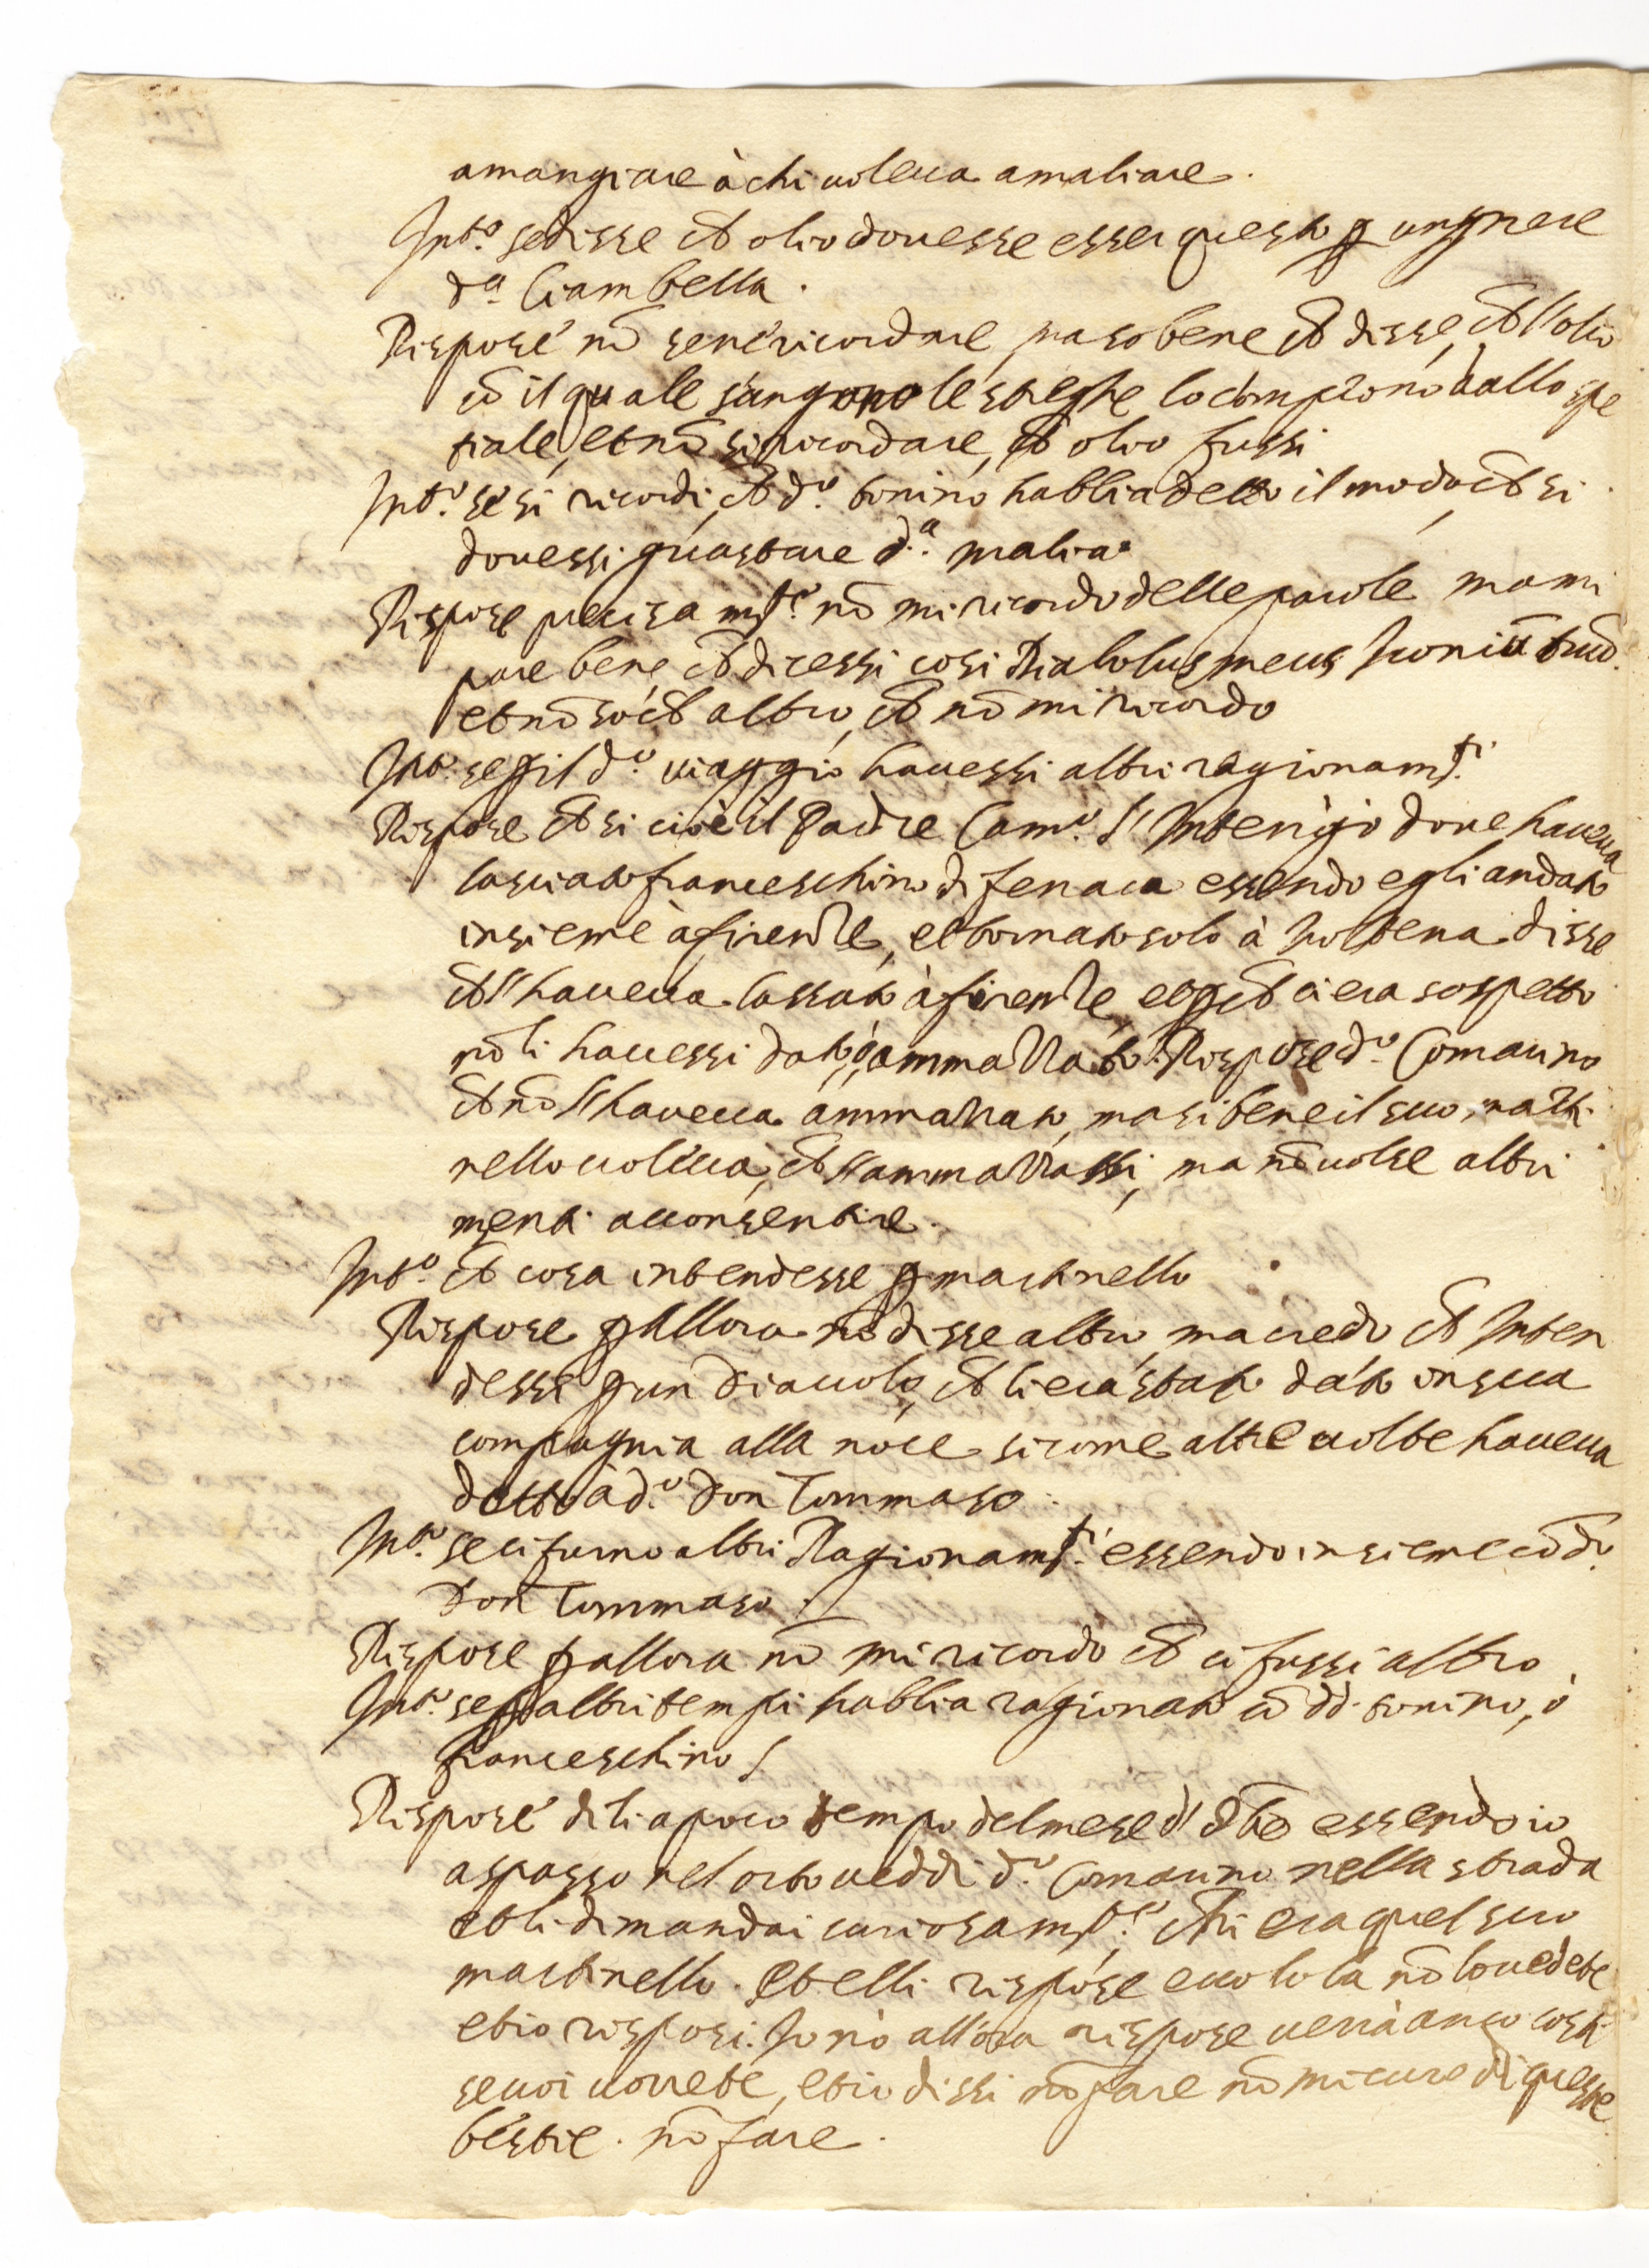 amangiare à chi uoleua amaliare.
Int.º se disse ch olio douesse esser questo p ungnere
d.ª Ciambella.
Rispose nõ sene ricordare, ma so bene ch disse, ch l'olio
cõ il quale s'ungono le streghe lo comprono dallo spe
tiale, et nõ si ricordare, ch olio fussi
Int.º se si ricordi, ch d.º tonino habbia detto il modo, ch si
douessi guastare d.ª malia.
Rispose precisam.te nõ mi ricordo delle parole ma mi
pare bene ch dicessi cosi Diabolus meus
et nõ so ch altro, ch nõ mi ricordo
Int.º se p il d.º uiaggio hauessi altri ragionam.ti
Rispose ch si cioè il Padre Cam.º l'Interigò doue haueua
lasciato franceschino di fenaia essendo egli andato
insieme à firenze, et tornato solo à Noltena disse
ch l'haueua lassato à firenze, et p ch ci era sospetto
nõ li hauessi dato, ò ammazzato. Rispose d.º Comanno
ch nõ l'haueua ammazzato, ma si bene il suo marti
nello uoleua, ch l'ammazzassi, ma nõ uolse altri
menti acconsentire.
Int.º ch cosa intendesse p martinello
Rispose p allora nõ disse altro, ma credo ch Inten
dessi p un Diauolo, ch li era stato dato in sua
compagnia alla noce sicome altre uolte haueua
detto à d.º Don Tommaso.
Int.º se ci furno altri Ragionam.ti essendo insieme cõ d.º
Don Tommaso.
Rispose p allora nõ mi ricordo ch ci fussi altro
Int.º se p altri tempi habbia ragionato cõ dd. tonino, ò
franceschino
Rispose di li a poco tempo del mese d' essendo io
aspasso nel orto ueddi d.º Comanno nella strada
et li dimandai curiosam.te chi era quel suo
martinello. Et elli rispose eccolo la nõ lo uedete
et io risposi. Io nò allora rispose uerrà anco costi
se uoi uorrete, et io dissi nõ fare nõ mi curo di queste
bestie. nõ fare.